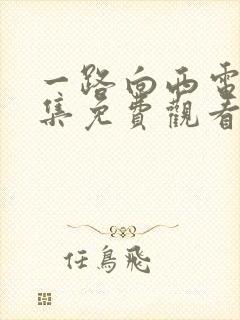 一路向西電
集免費觀看
任鳥飛